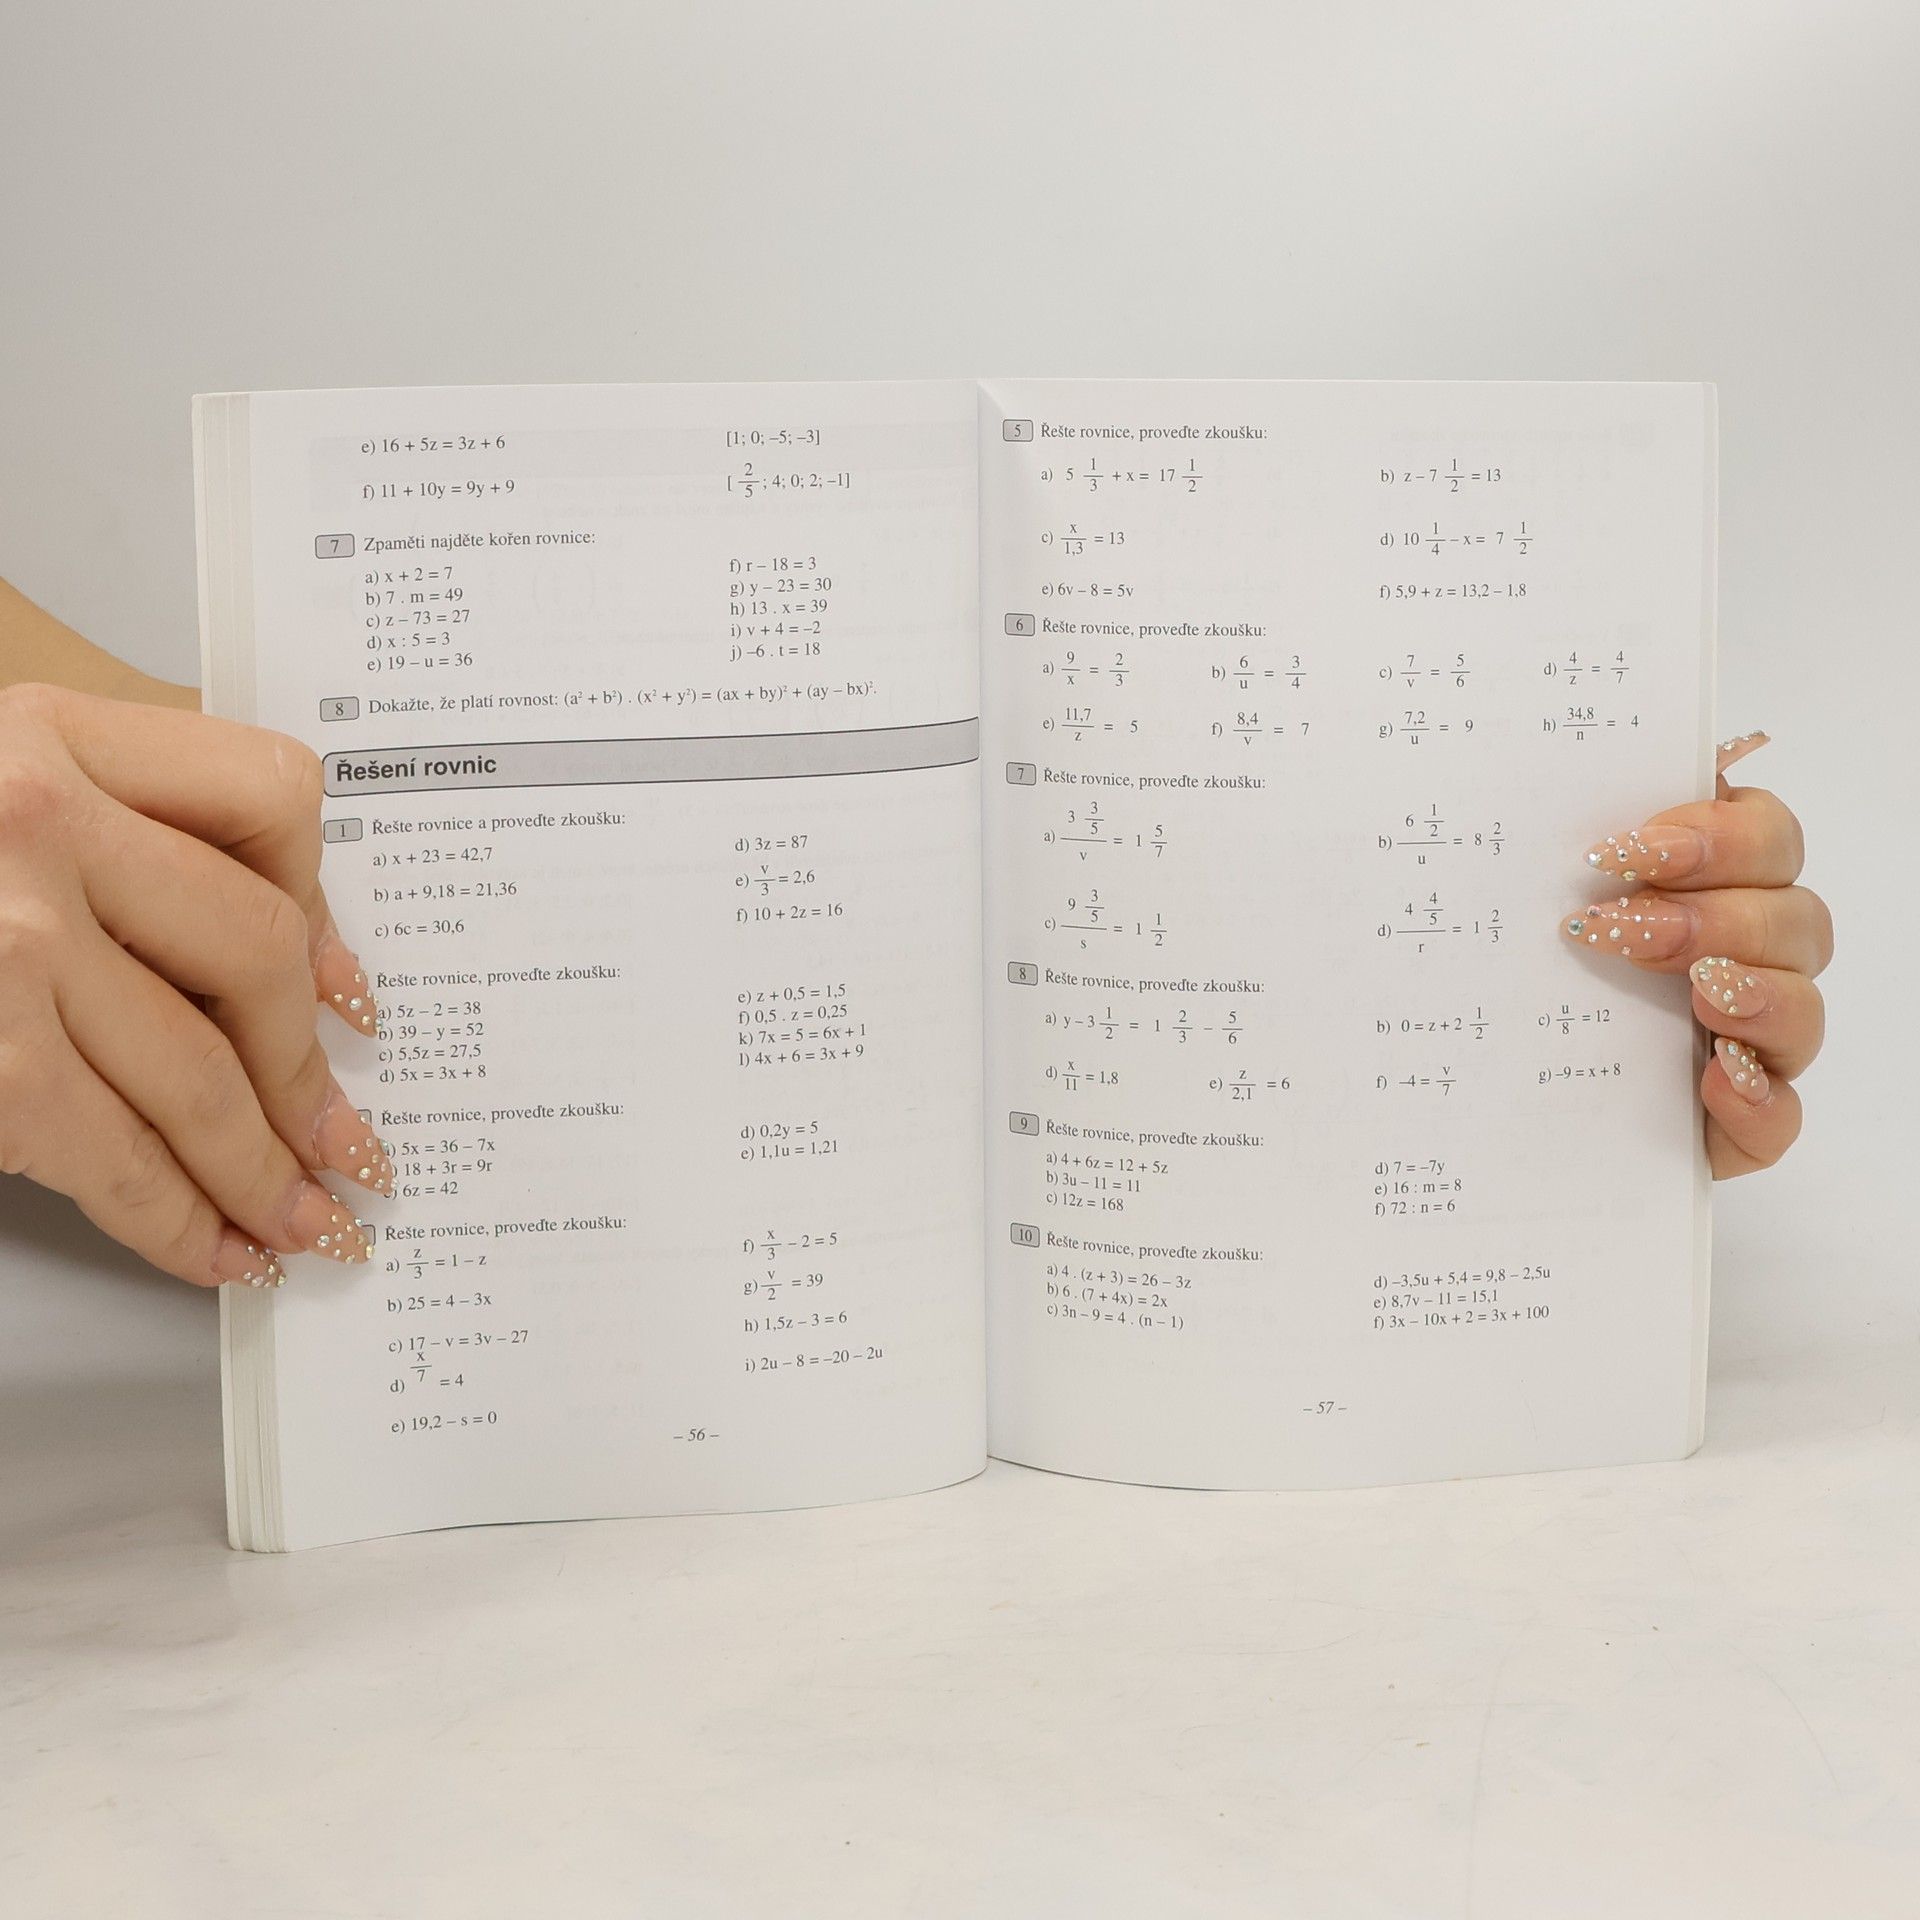 e) 16 + 5z = 3z + 6 [1; 0; –5; –3]
f) 11 + 10y = 9y + 9 [ 2/5 ; 4; 0; 2; –1]
7 Zpaměti najděte kořen rovnice:
a) x + 2 = 7 f) r – 18 = 3
b) 7 . m = 49 g) y – 23 = 30
c) z – 73 = 27 h) 13 . x = 39
d) x : 5 = 3 i) v + 4 = –2
e) 19 – u = 36 j) –6 . t = 18
8 Dokažte, že platí rovnost: (a² + b²) . (x² + y²) = (ax + by)² + (ay – bx)².
Řešení rovnic
1 Řešte rovnice a proveďte zkoušku:
a) x + 23 = 42,7 d) 3z = 87
b) a + 9,18 = 21,36 e) v/3 = 2,6
c) 6c = 30,6 f) 10 + 2z = 16
Řešte rovnice, proveďte zkoušku:
a) 5z – 2 = 38 e) z + 0,5 = 1,5
b) 39 – y = 52 f) 0,5 . z = 0,25
c) 5,5z = 27,5 k) 7x = 5 = 6x + 1
d) 5x = 3x + 8 l) 4x + 6 = 3x + 9
Řešte rovnice, proveďte zkoušku:
) 5x = 36 – 7x d) 0,2y = 5
) 18 + 3r = 9r e) 1,1u = 1,21
c) 6z = 42
Řešte rovnice, proveďte zkoušku:
a) z/3 = 1 – z f) x/3 – 2 = 5
b) 25 = 4 – 3x g) v/2 = 39
c) 17 – v = 3v – 27 h) 1,5z – 3 = 6
d) x/7 = 4 i) 2u – 8 = –20 – 2u
e) 19,2 – s = 0
– 56 –
5 Řešte rovnice, proveďte zkoušku:
a) 5 1/3 + x = 17 1/2 b) z – 7 1/2 = 13
c) x/1,3 = 13 d) 10 1/4 – x = 7 1/2
e) 6v – 8 = 5v f) 5,9 + z = 13,2 – 1,8
6 Řešte rovnice, proveďte zkoušku:
a) 9/x = 2/3 b) 6/u = 3/4 c) 7/v = 5/6 d) 4/z = 4/7
e) 11,7/z = 5 f) 8,4/v = 7 g) 7,2/u = 9 h) 34,8/n = 4
7 Řešte rovnice, proveďte zkoušku:
a) 3 3/5 / v = 1 5/7 b) 6 1/2 / u = 8 2/3
c) 9 3/5 / s = 1 1/2 d) 4 4/5 / r = 1 2/3
8 Řešte rovnice, proveďte zkoušku:
a) y – 3 1/2 = 1 2/3 – 5/6 b) 0 = z + 2 1/2 c) u/8 = 12
d) x/11 = 1,8 e) z/2,1 = 6 f) –4 = v/7 g) –9 = x + 8
9 Řešte rovnice, proveďte zkoušku:
a) 4 + 6z = 12 + 5z d) 7 = –7y
b) 3u – 11 = 11 e) 16 : m = 8
c) 12z = 168 f) 72 : n = 6
10 Řešte rovnice, proveďte zkoušku:
a) 4 . (z + 3) = 26 – 3z d) –3,5u + 5,4 = 9,8 – 2,5u
b) 6 . (7 + 4x) = 2x e) 8,7v – 11 = 15,1
c) 3n – 9 = 4 . (n – 1) f) 3x – 10x + 2 = 3x + 100
– 57 –